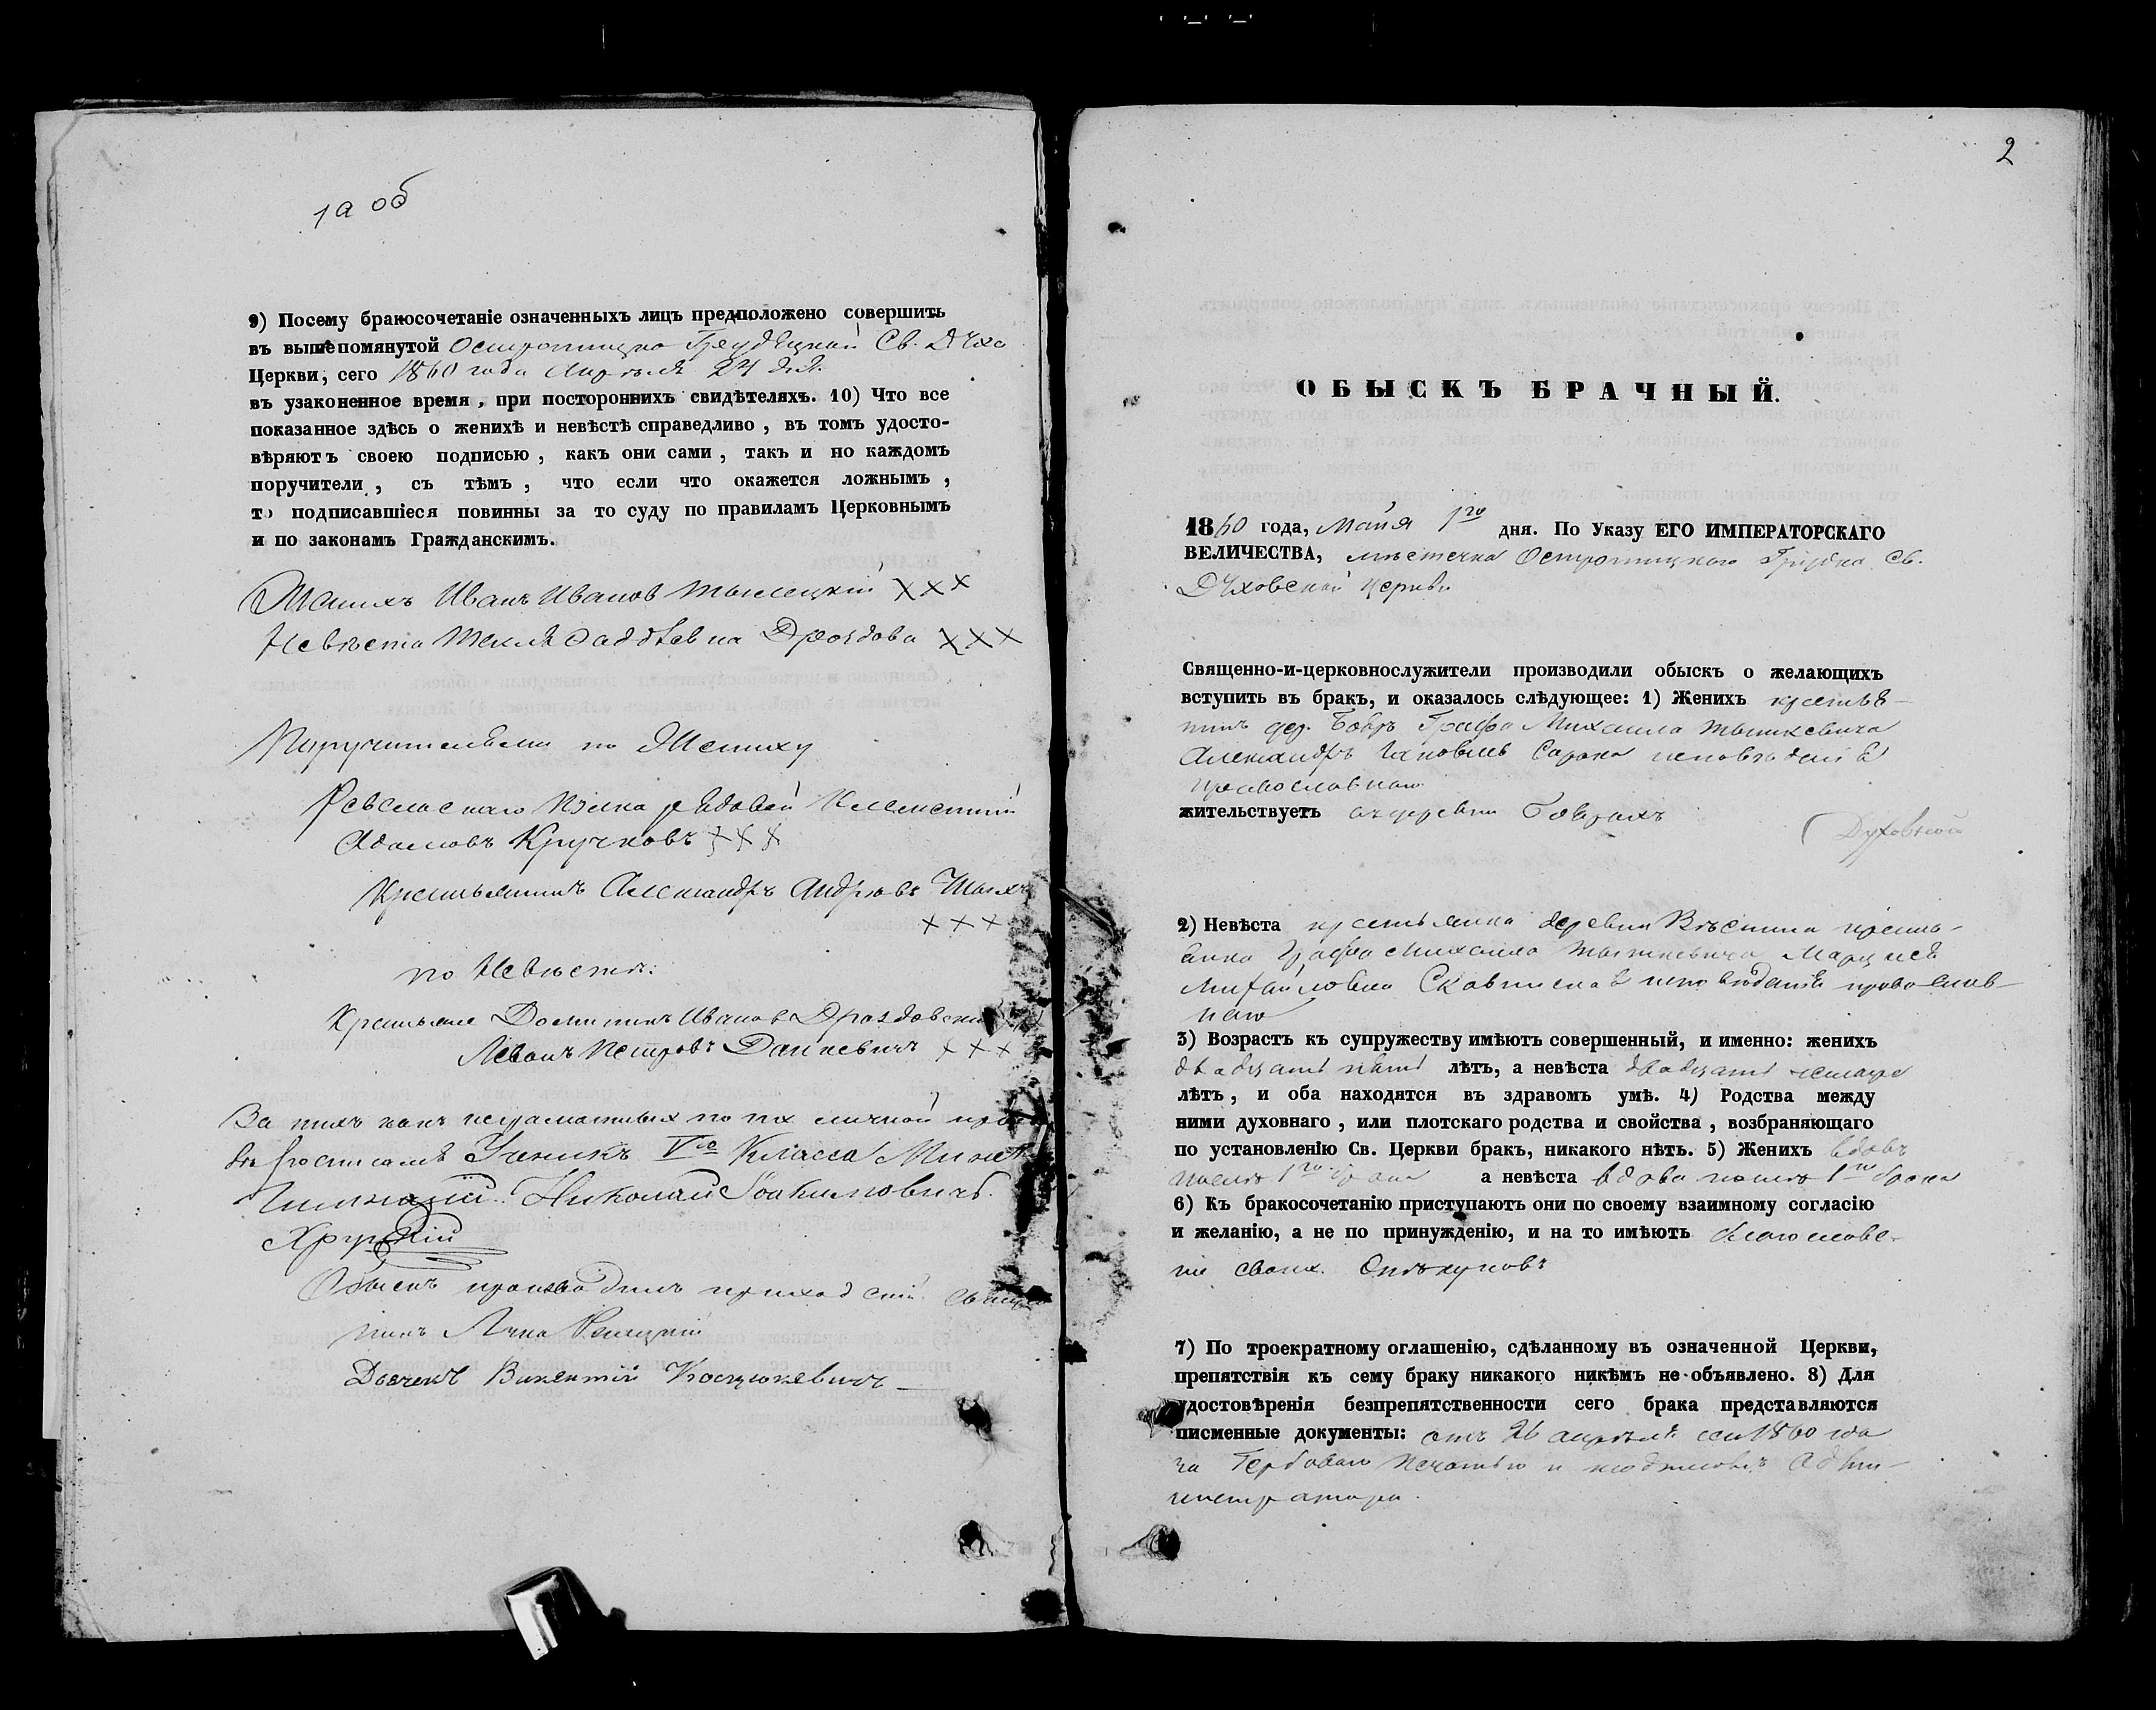 1а об
9) Посему бракосочетаніе означенныхъ лицъ предположено совершить
въ вышепомянутой Остропицко Св. Духо
Церкви, сего 1860 года Апреля 24 дня
въ узаконенное время, при постороннихъ свидѣтеляхъ. 10) Что все
показанное здѣсь о женихѣ и невѣстѣ справедливо, въ томъ удосто-
вѣряютъ своею подписью, какъ они сами, такъ и по каждомъ
поручители, съ тѣмъ, что если что окажется ложнымъ,
то подписавшіеся повинны за то суду по правиламъ Церковнымъ
и по законамъ Гражданскимъ.
Женихъ Иванъ Ивановъ ххх
Невѣста Текля Фаддѣевна Дроздова ххх
Поручители по Жениху
полка рядовой Климентій
Адамовъ Кручковъ ххх
Крестьянинъ Александръ Андреевъ
ххх
по Невѣстѣ:
Крестьяне Ивановъ
Леванъ Петровъ Данкевичъ ххх
За нихъ какъ неграмотныхъ по ихъ личной
росписался Ученикъ Vго Класса
Гимназіи Николай Іоакимовичъ
Хруцкій
Обыскъ производилъ приходскій
Лука
Дьячекъ Викентій Косцюкевичъ
2
ОБЫСКЪ БРАЧНЫЙ.
1860 года, Майя 1го дня. По Указу ЕГО ИМПЕРАТОРСКАГО
ВЕЛИЧЕСТВА, мѣстечка Остропицкаго Св.
Духовской церкви
Священно-и-церковнослужители производили обыскъ о желающихъ
вступить въ бракъ, и оказалось слѣдующее: 1) Женихъ крестья-
нинъ дер. Бобръ Графа Михаила Тышкевича
Александръ Сорока исповѣданія
православнаго
жительствуетъ въ деревни Бобрахъ
Духовной
2) Невѣста крестьянка деревни кресть-
янка Графа Михаила Тышкевича
Михайловна исповѣданія православ-
наго
3) Возрастъ къ супружеству имѣютъ совершенный, и именно: женихъ
двадцать пять лѣтъ, а невѣста двадцать четыре
лѣтъ, и оба находятся въ здравомъ умѣ. 4) Родства между
ними духовнаго, или плотскаго родства и свойства, возбраняющаго
по установленію Св. Церкви бракъ, никакого нѣтъ. 5) Женихъ вдовъ
послѣ 1го брака а невѣста вдова послѣ 1го брака
6) Къ бракосочетанію приступаютъ они по своему взаимному согласію
и желанію, а не по принужденію, и на то имѣютъ благослове-
ніе своихъ Опѣкуновъ
7) По троекратному оглашенію, сдѣланному въ означенной Церкви,
препятствія къ сему браку никакого никѣмъ не объявлено. 8) Для
удостовѣренія безпрепятственности сего брака представляются
писменные документы: отъ 26 апрѣля сего 1860 года
за Гербовою Печатью и подписомъ Адми-
нистратора.